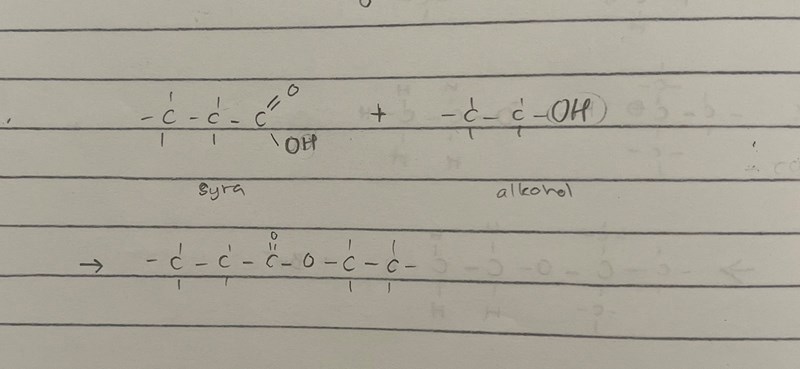 - C - C - C = O \ OH + - C - C - OH
syra alkohol
→ - C - C - C = O - O - C - C -